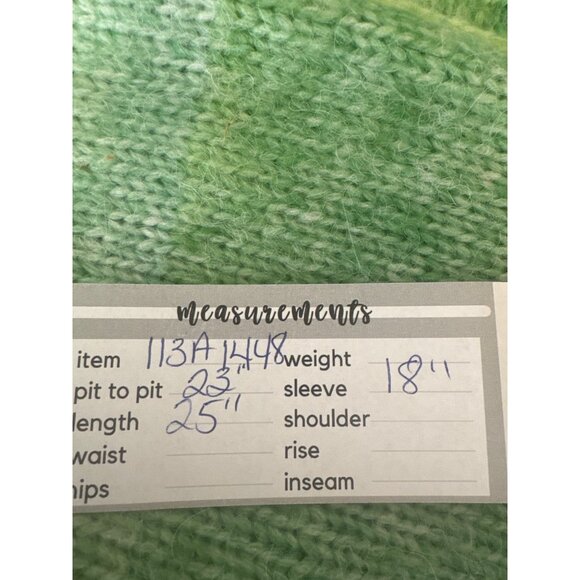 measurements
item 113A1448 weight
pit to pit 23" sleeve 18"
length 25" shoulder
waist rise
hips inseam